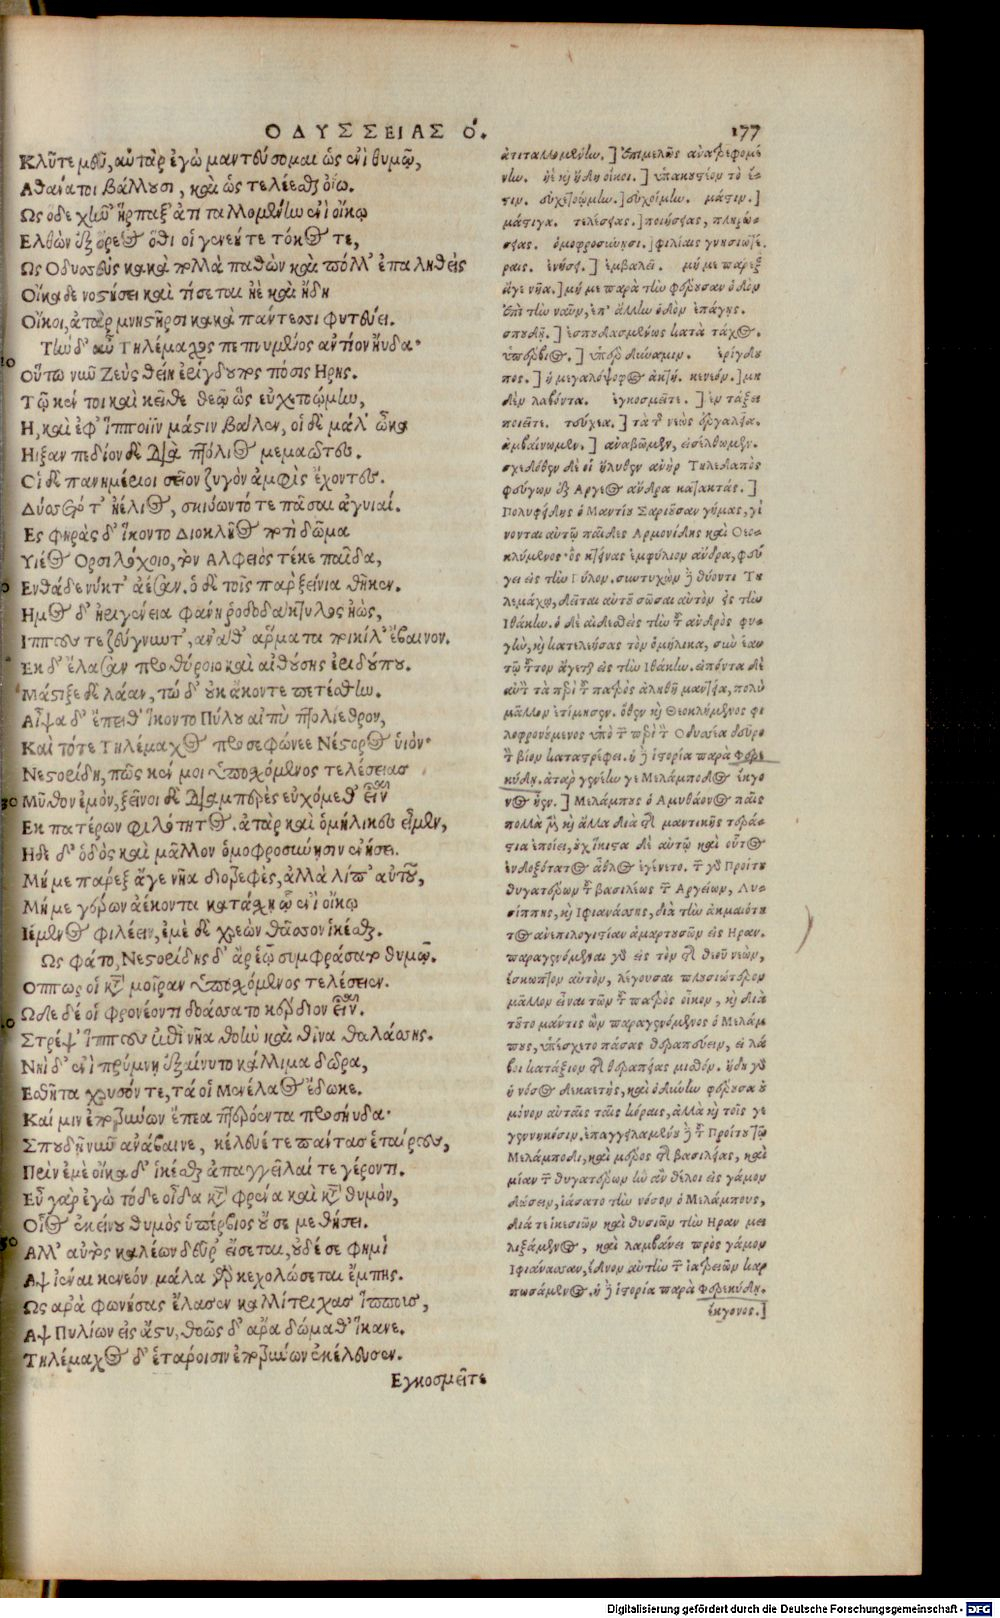 ΟΔΥΣΣΕΙΑΣ Ο. 177
Κλῦτε μευ, αὐτὰρ ἐγὼ μαντεύσομαι ὡς ἐνὶ θυμῷ,
Ἀθάνατοι βάλλουσι, καὶ ὡς τελέεσθαι ὀΐω.
Ως ὅδε χῆν' ἥρπαξ' ἀτιταλλομένην ἐνὶ οἴκῳ
Ελθὼν ἐξ ὄρεος ὅθι οἱ γενεή τε τόκος τε,
Ως Οδυσσεὺς κακὰ πολλὰ παθὼν καὶ πόλλ' ἐπαληθεὶς
Οἴκαδε νοστήσει καὶ τίσεται ἠὲ καὶ ἤδη
Οἴκοι, ἀτὰρ μνηστῆρσι κακὰ πάντεσσι φυτεύει.
Τὴν δ' αὖ Τηλέμαχος πεπνυμένος ἀντίον ηὔδα·
10
Οὕτω νῦν Ζεὺς θείη ἐρίγδουπος πόσις Ηρης.
Τῷ κέν τοι καὶ κεῖθι θεῷ ὣς εὐχετοῴμην,
Η, καὶ ἐφ' ἵπποιϊν μάστιν βάλεν, οἱ δὲ μάλ' ὦκα
Ηϊξαν πεδίον δὲ διὰ πτόλιος μεμαῶτες.
Οἱ δὲ πανημέριοι σεῖον ζυγὸν ἀμφὶς ἔχοντες.
Δύσετό τ' ἠέλιος, σκιόωντό τε πᾶσαι ἀγυιαί.
Ες φηρὰς δ' ἵκοντο Διοκλῆος ποτὶ δῶμα
Υἱέος Ορσιλόχοιο, τὸν Αλφειὸς τέκε παῖδα,
Ενθάδε νύκτ' ἄεσαν. ὁ δὲ τοῖς παρ ξείνια θῆκεν.
Ημος δ' ἠριγένεια φάνη ῥοδοδάκτυλος ἠὼς,
Ιππους τε ζεύγνυντ', ἀνά θ' ἅρματα ποικίλ' ἔβαινον.
Εκ δ' ἔλασαν προθύροιο καὶ αἰθούσης ἐριδούπου.
Μάστιξε δὲ λάαν, τὼ δ' οὐκ ἄκοντε πετέσθην.
Αἶψα δ' ἔπειθ' ἵκοντο Πύλου αἰπὺ πτολίεθρον,
Καὶ τότε Τηλέμαχος προσεφώνεε Νέστορος υἱόν·
Νεστορίδη, πῶς κέν μοι ὑποσχόμενος τελέσειας
30 Μῦθον ἐμόν, ξεῖνοι δὲ διαμπερὲς εὐχόμεθ' εἶναι
Εκ πατέρων φιλότητος. ἀτὰρ καὶ ὁμήλικες εἰμὲν,
Ηδε δ' ὁδὸς καὶ μᾶλλον ὁμοφροσύνησιν ἐνήσει.
Μή με παρὲξ ἄγε νῆα διοτρεφὲς, ἀλλὰ λίπ' αὐτοῦ,
Μή με γέρων ἀέκοντα κατάσχῃ ᾧ ἐνὶ οἴκῳ
Ιέμενος φιλέειν, ἐμὲ δὲ χρεὼν θᾶσσον ἱκέσθαι.
Ως φάτο, Νεστορίδης δ' ἄρ ἑῷ συμφράσατο θυμῷ.
Οππως οἱ κατὰ μοῖραν ὑποσχόμενος τελέσειεν.
Ωδε δέ οἱ φρονέοντι δοάσσατο κέρδιον εἶναι.
Στρέψ' ἵππους ἐπὶ νῆα θοὴν καὶ θῖνα θαλάσσης.
Νηῒ δ' ἐνὶ πρύμνῃ ἐξαίνυτο κάλλιμα δῶρα,
Εσθῆτα χρυσόν τε, τά οἱ Μενέλαος ἔδωκε.
Καί μιν ἐποτρύνων ἔπεα πτερόεντα προσηύδα·
Σπουδῇ νῦν ἀνάβαινε, κέλευέ τε πάντας ἑταίρους,
Πρὶν ἐμὲ οἴκαδ' ἱκέσθαι ἀπαγγεῖλαί τε γέροντι.
Εὖ γὰρ ἐγὼ τόδε οἶδα κατὰ φρένα καὶ κατὰ θυμόν,
Οἷος ἐκείνου θυμὸς ὑπέρβιος οὔ σε μεθήσει.
50 Αλλ' αὐτὸς καλέων δεῦρ' εἴσεται, οὐδέ σε φημὶ
Αψ ἰέναι κενεόν. μάλα γὰρ κεχολώσεται ἔμπης.
Ως ἄρα φωνήσας ἔλασεν καλλίτριχας ἵππους,
Αψ Πυλίων εἰς ἄστυ, θοῶς δ' ἄρα δώμαθ' ἵκανε.
Τηλέμαχος δ' ἑτάροισιν ἐποτρύνων ἐκέλευσεν.
Εγκοσμεῖτε
ἀτιταλλομένην.] ἐπιμελῶς ἀνατρεφομέ
νην. ἠὲ καὶ ἤδη οἴκοι.] ὑπακουστέον τὸ ἔ-
στιν. εὐχετοῴμην.] εὐχοίμην. μάστιν.]
μάστιγα. τελέσειας.] ποιήσειας, πληρώ-
σειας. ὁμοφροσύνῃσι.] φιλίαις γνησιωτέ-
ραις. ἐνήσει.] ἐμβαλεῖ. μή με παρὲξ
ἄγε νῆα.] μή με παρὰ τὴν φέρουσαν ὁδὸν
ἐπὶ τὴν ναῦν, ἐπ' ἄλλην ὁδὸν ἐπάγῃς.
σπουδῇ.] ἐσπουδασμένως κατὰ τάχος.
ὑπέρβιος.] ὑπὲρ δύναμιν. ἐρίγδου
πος.] ἡ μεγαλόψοφος ἀκτή. κενεόν.] μη
δὲν λαβόντα. ἐγκοσμεῖτε.] ἐν τάξει
ποιεῖτε. τεύχεα.] τὰ τῆς νεὼς ἐργαλεῖα.
ἀμβαίνωμεν.] ἀναβῶμεν, εἰσέλθωμεν.
σχεδόθεν δέ οἱ ἤλυθεν ἀνὴρ Τηλεδαπὸς
φεύγων ἐξ Αργεος ἄνδρα κατακτάς.]
Πολυφείδης ὁ Μαντίου Σαριοῦσαν γήμας, γί
νονται αὐτῷ παῖδες Αρμονίδης καὶ Θεο-
κλύμενος· ὃς κτείνας ἐμφύλιον ἄνδρα, φεύ
γει εἰς τὴν Πύλον. συντυχὼν δὲ θύοντι Τη
λεμάχῳ, δεῖται αὐτοῦ σῶσαι αὐτὸν ἐς τὴν
Ιθάκην. ὁ δὲ αἰδεσθεὶς τὴν τοῦ ἀνδρὸς φυ-
γὴν, καὶ κατελεήσας τὸν ὁμήλικα, σὺν ἑαυ
τῷ τοῦτον ἄγεται εἰς τὴν Ιθάκην. εἰπόντα δὲ
αὐτῷ τὰ περὶ τοῦ πατρὸς ἀληθῆ μαντεῖα, πολὺ
μᾶλλον ἐτίμησεν. ὅθεν καὶ Θεοκλύμενος φι
λοφρονούμενος ὑπὸ τῶν περὶ τὸν Οδυσσέα δεῦρο
τὸν βίον καταστρέφει. ἡ δὲ ἱστορία παρὰ Φερε
κύδῃ. ἀτὰρ γενεήν γε Μελάμποδος ἔκγο
νος ἦεν.] Μελάμπους ὁ Αμυθάονος παῖς
πολλὰ μὲν καὶ ἄλλα διὰ τῆς μαντικῆς τερά-
στια ἐποίει, οὐχ ἥκιστα δὲ αὐτῷ καὶ οὗτος
ἐνδοξότατος ἆθλος ἐγένετο. τῶν γὰρ Προίτου
θυγατέρων τοῦ βασιλέως τῶν Αργείων, Λυ-
σίππης, καὶ Ιφιανάσσης, διὰ τὴν ἀκμαιότη
τος ἀνεπιλογιστίαν ἁμαρτουσῶν εἰς Ηραν.
παραγενόμεναι γὰρ εἰς τὸν τῆς θεοῦ νεὼν,
ἔσκωπτον αὐτὸν, λέγουσαι πλουσιώτερον
μᾶλλον εἶναι τὸν τοῦ πατρὸς οἶκον, καὶ διὰ
τοῦτο μάντις ὢν παραγενόμενος ὁ Μελάμ
πους, ὑπέσχετο πάσας θεραπεύειν, εἰ λά
βοι κατάξιον τῆς θεραπείας μισθόν. ἤδη γὰρ
ἡ νόσος δεκαετής, καὶ ὀδύνην φέρουσα οὐ
μόνον αὐταῖς ταῖς κόραις, ἀλλὰ καὶ τοῖς γε
γεννηκόσιν. ἐπαγγειλαμένου δὲ τοῦ Προίτου τῷ
Μελάμποδι, καὶ μέρος τῆς βασιλείας, καὶ
μίαν τῶν θυγατέρων ἣν ἂν θέλοι εἰς γάμον
δώσειν, ἰάσατο τὴν νόσον ὁ Μελάμπους,
διά τε ἱκεσιῶν καὶ θυσιῶν τὴν Ηραν μει
λιξάμενος, καὶ λαμβάνει πρὸς γάμον
Ιφιάνασσαν, ἕδνον αὐτὴν τῶν ἰατρειῶν καρ
πωσάμενος. ἡ δὲ ἱστορία παρὰ Φερεκύδῃ.
ἔκγονος.]
Digitalisierung gefördert durch die Deutsche Forschungsgemeinschaft - DFG